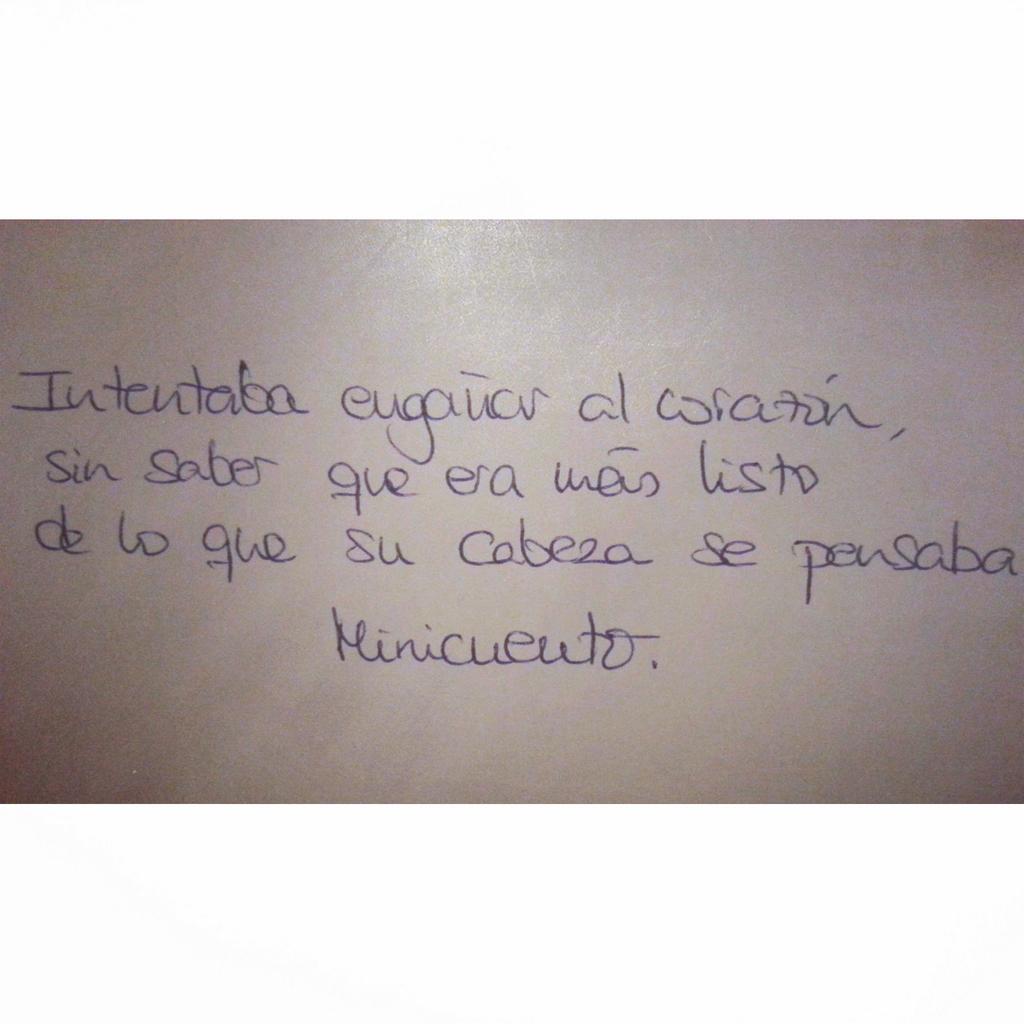 Intentaba engañar al corazón,
sin saber que era más listo
de lo que su cabeza se pensaba
Minicuento.